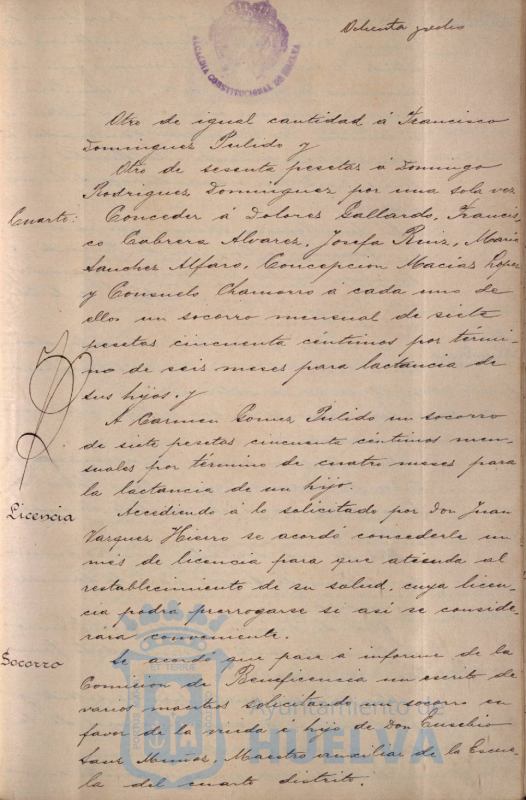 Ochenta y ocho
ALCALDIA CONSTITUCIONAL DE HUELVA
Otro de igual cantidad á Francisco
Dominguez Pulido y
Otro de sesenta pesetas á Domingo
Rodriguez Dominguez por una sola vez
Cuarto: Conceder á Dolores Gallardo, Francis-
co Cabrera Alvarez, Josefa Ruiz, Maria
Sanchez Alfaro, Concepcion Macias Lopez
y Consuelo Chamorro á cada uno de
ellos un socorro mensual de siete
pesetas cincuenta céntimos por térmi-
no de seis meses para lactancia de
sus hijos. y
A Carmen Gomez Pulido un socorro
de siete pesetas cincuenta céntimos men-
suales por término de cuatro meses para
la lactancia de un hijo.
Licencia Accediendo á lo solicitado por Don Juan
Vazquez Hiero se acordó concederle un
més de licencia para que atienda al
restablecimiento de su salud, cuya licen-
cia podrá prorrogarse si asi se conside-
rára conveniente.
Socorro Se acordó que pase á informe de la
Comision de Beneficencia un escrito de
varios maestros solicitando un socorro en
favor de la viuda e hijo de Don Eusebio
Sanz Munoz, Maestro auxiliar de la Escue-
la del cuarto distrito.
Ayuntamiento de
HUELVA